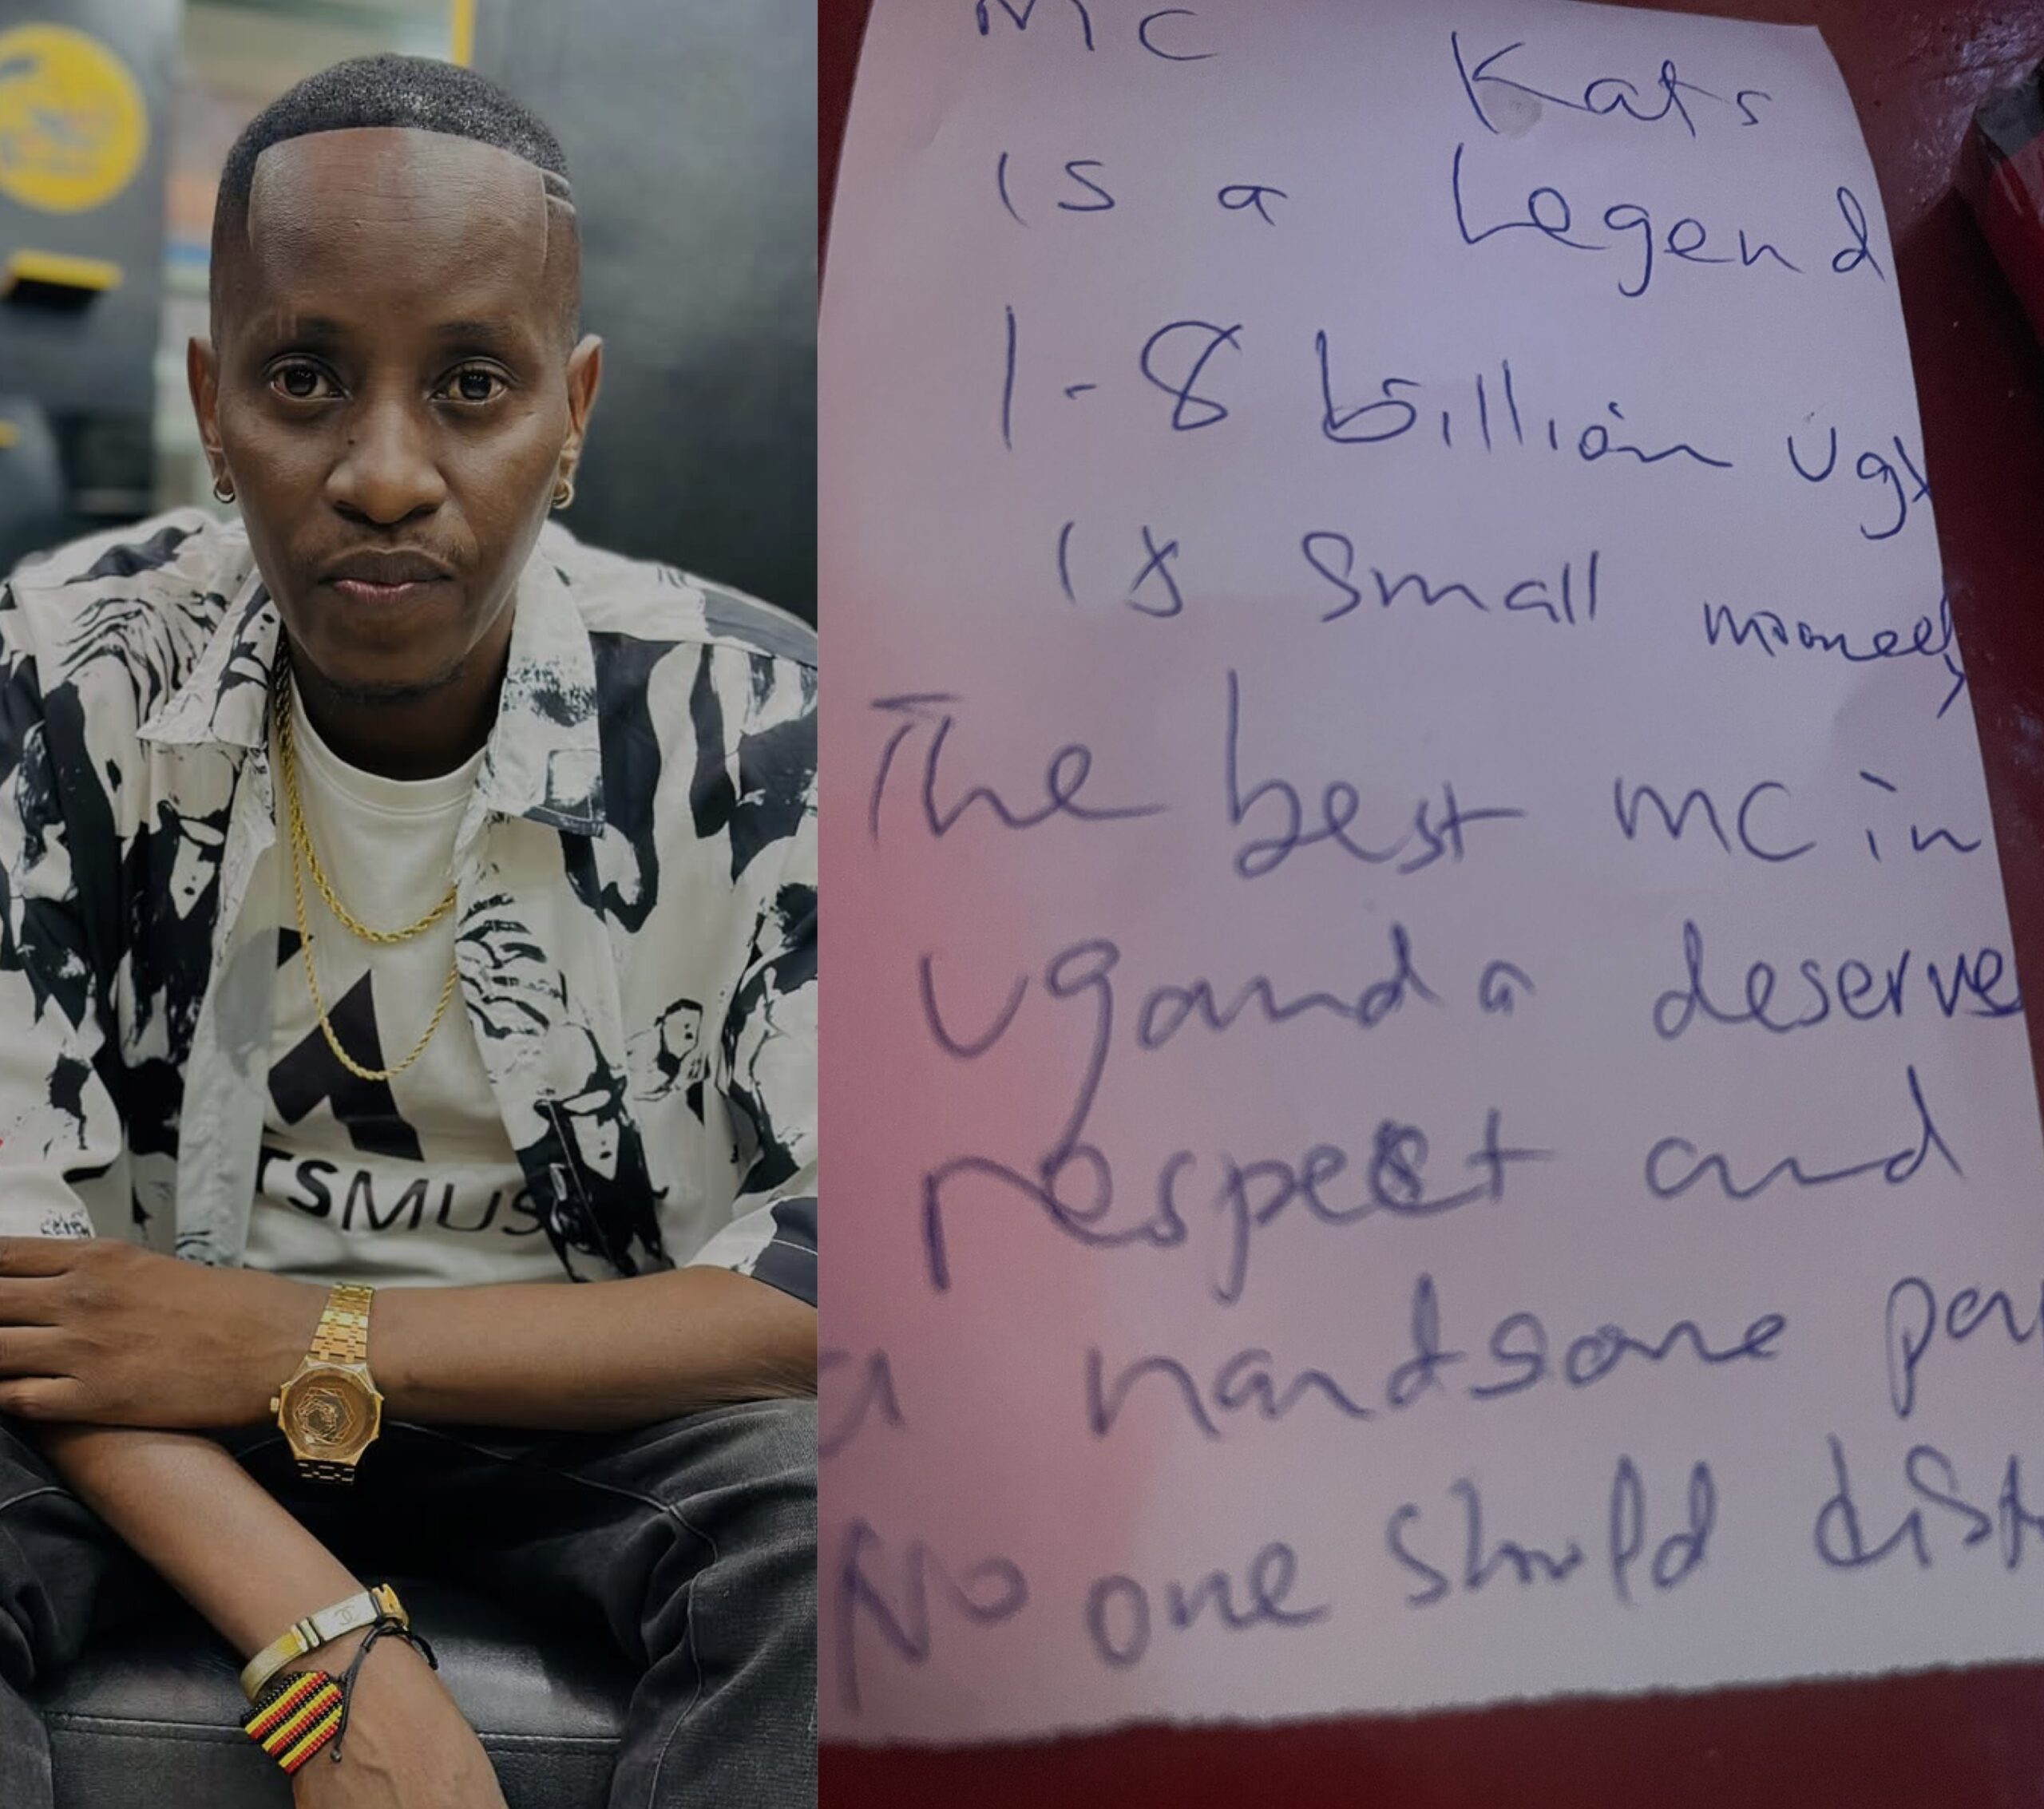 TSMUS
MC Kats
is a Legend
1-8 billion Ugx
is small money
The best MC in
Uganda deserve
respect and
a handsome pay
No one should dist